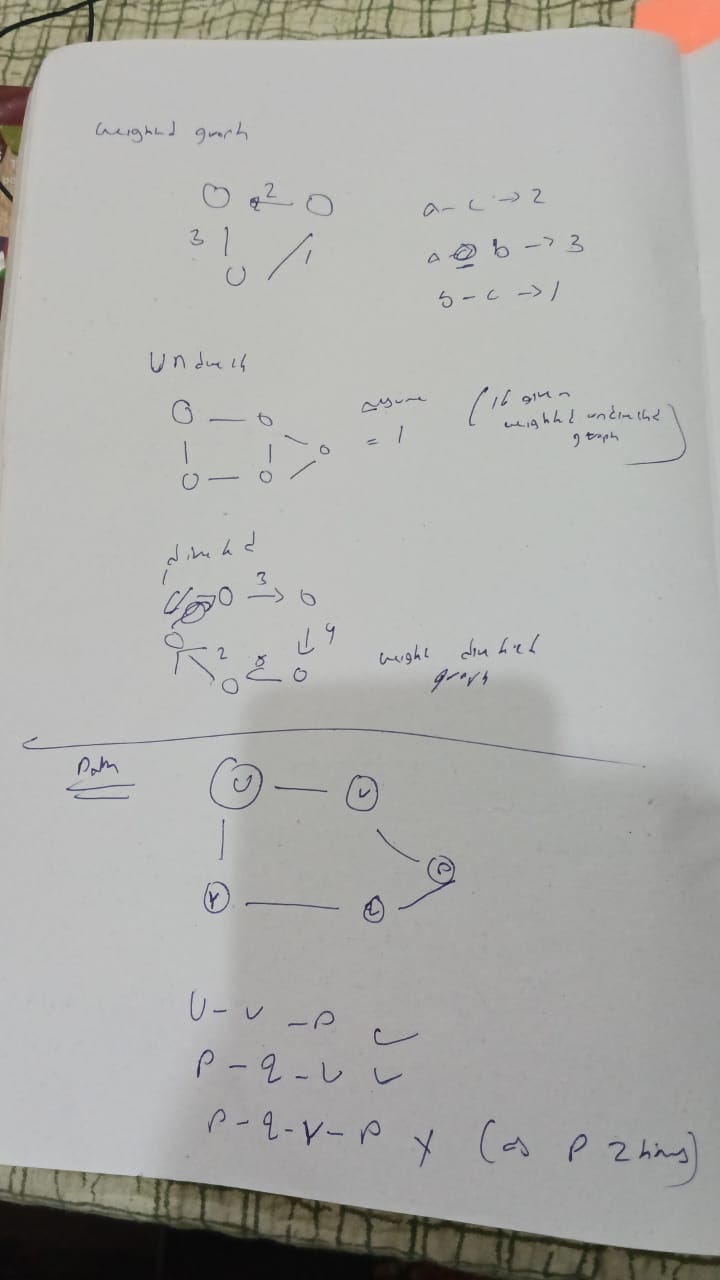 weighted graph
2
3
1
a - c → 2
a b → 3
b - c → 1
Undirect
assume
= 1
(if given
weighted undirected
graph)
directed
3
4
2
weight directed
graph
Path
U
V
P
r
q
U - V - P ✓
P - q - ✓
P - q - r - P X (as P 2 times)